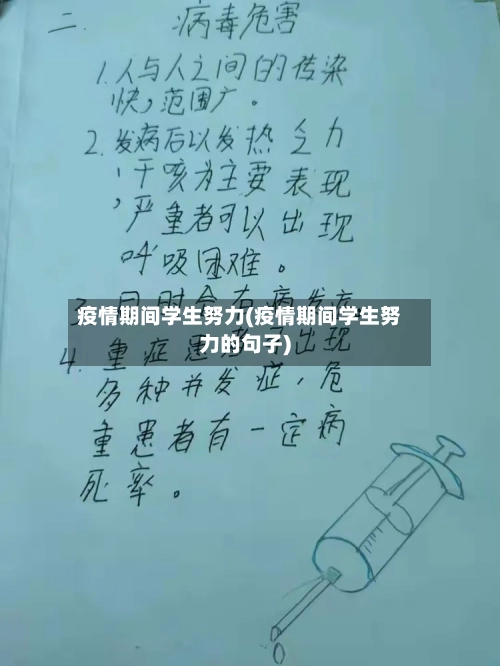 二. 病毒危害
1.人与人之间的传染
快,范围广。
2.发病后以发热乏力
,干咳为主要表现
,严重者可以出现
呼吸困难。
疫情期间学生努力(疫情期间学生努
力的句子)
4.重症患者可出现
多种并发症,危
重患者有一定病
死率。